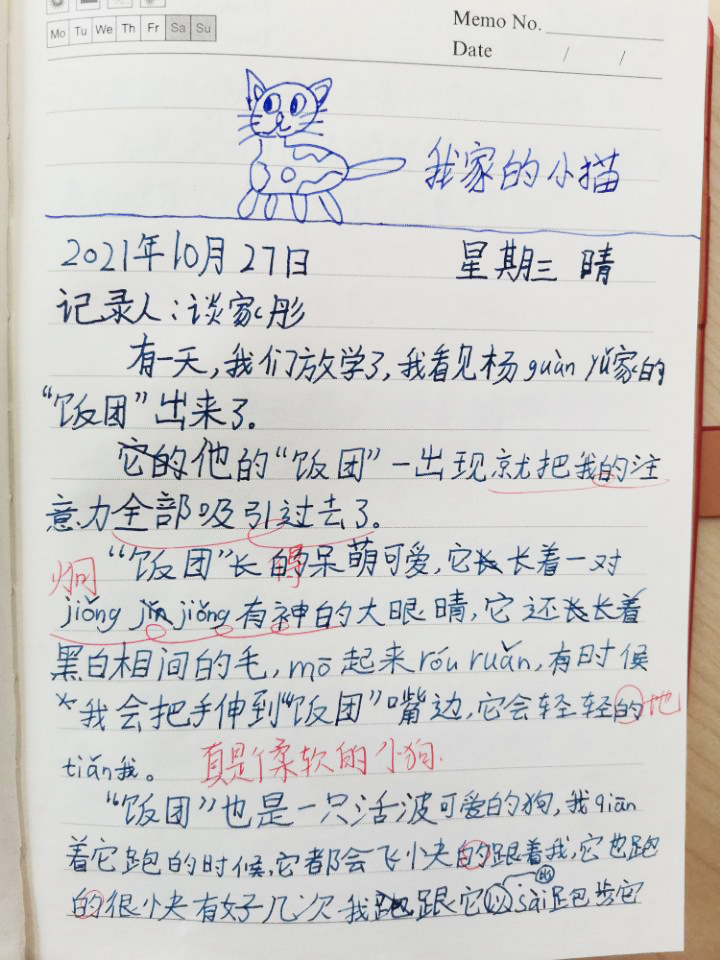 Mo Tu We Th Fr Sa Su
Memo No.
Date / /
我家的小猫
2021年10月27日 星期三 晴
记录人:谈家彤
有一天,我们放学了,我看见杨guàn yǔ家的
“饭团”出来了。
它的他的“饭团”一出现就把我的注
意力全部吸引过去了。
炯
“饭团”长的得呆萌可爱,它长长着一对
jiǒng jiǒng有神的大眼睛,它还长长着
黑白相间的毛,mō起来róu ruǎn,有时候
我会把手伸到“饭团”嘴边,它会轻轻的地
tiǎn我。 真是个柔软的小狗.
“饭团”也是一只活波可爱的狗,我qiān
着它跑的时候,它都会飞小夬的跟着我,它也跑
的很小夬有好几次我跑跟它以sài跑步它